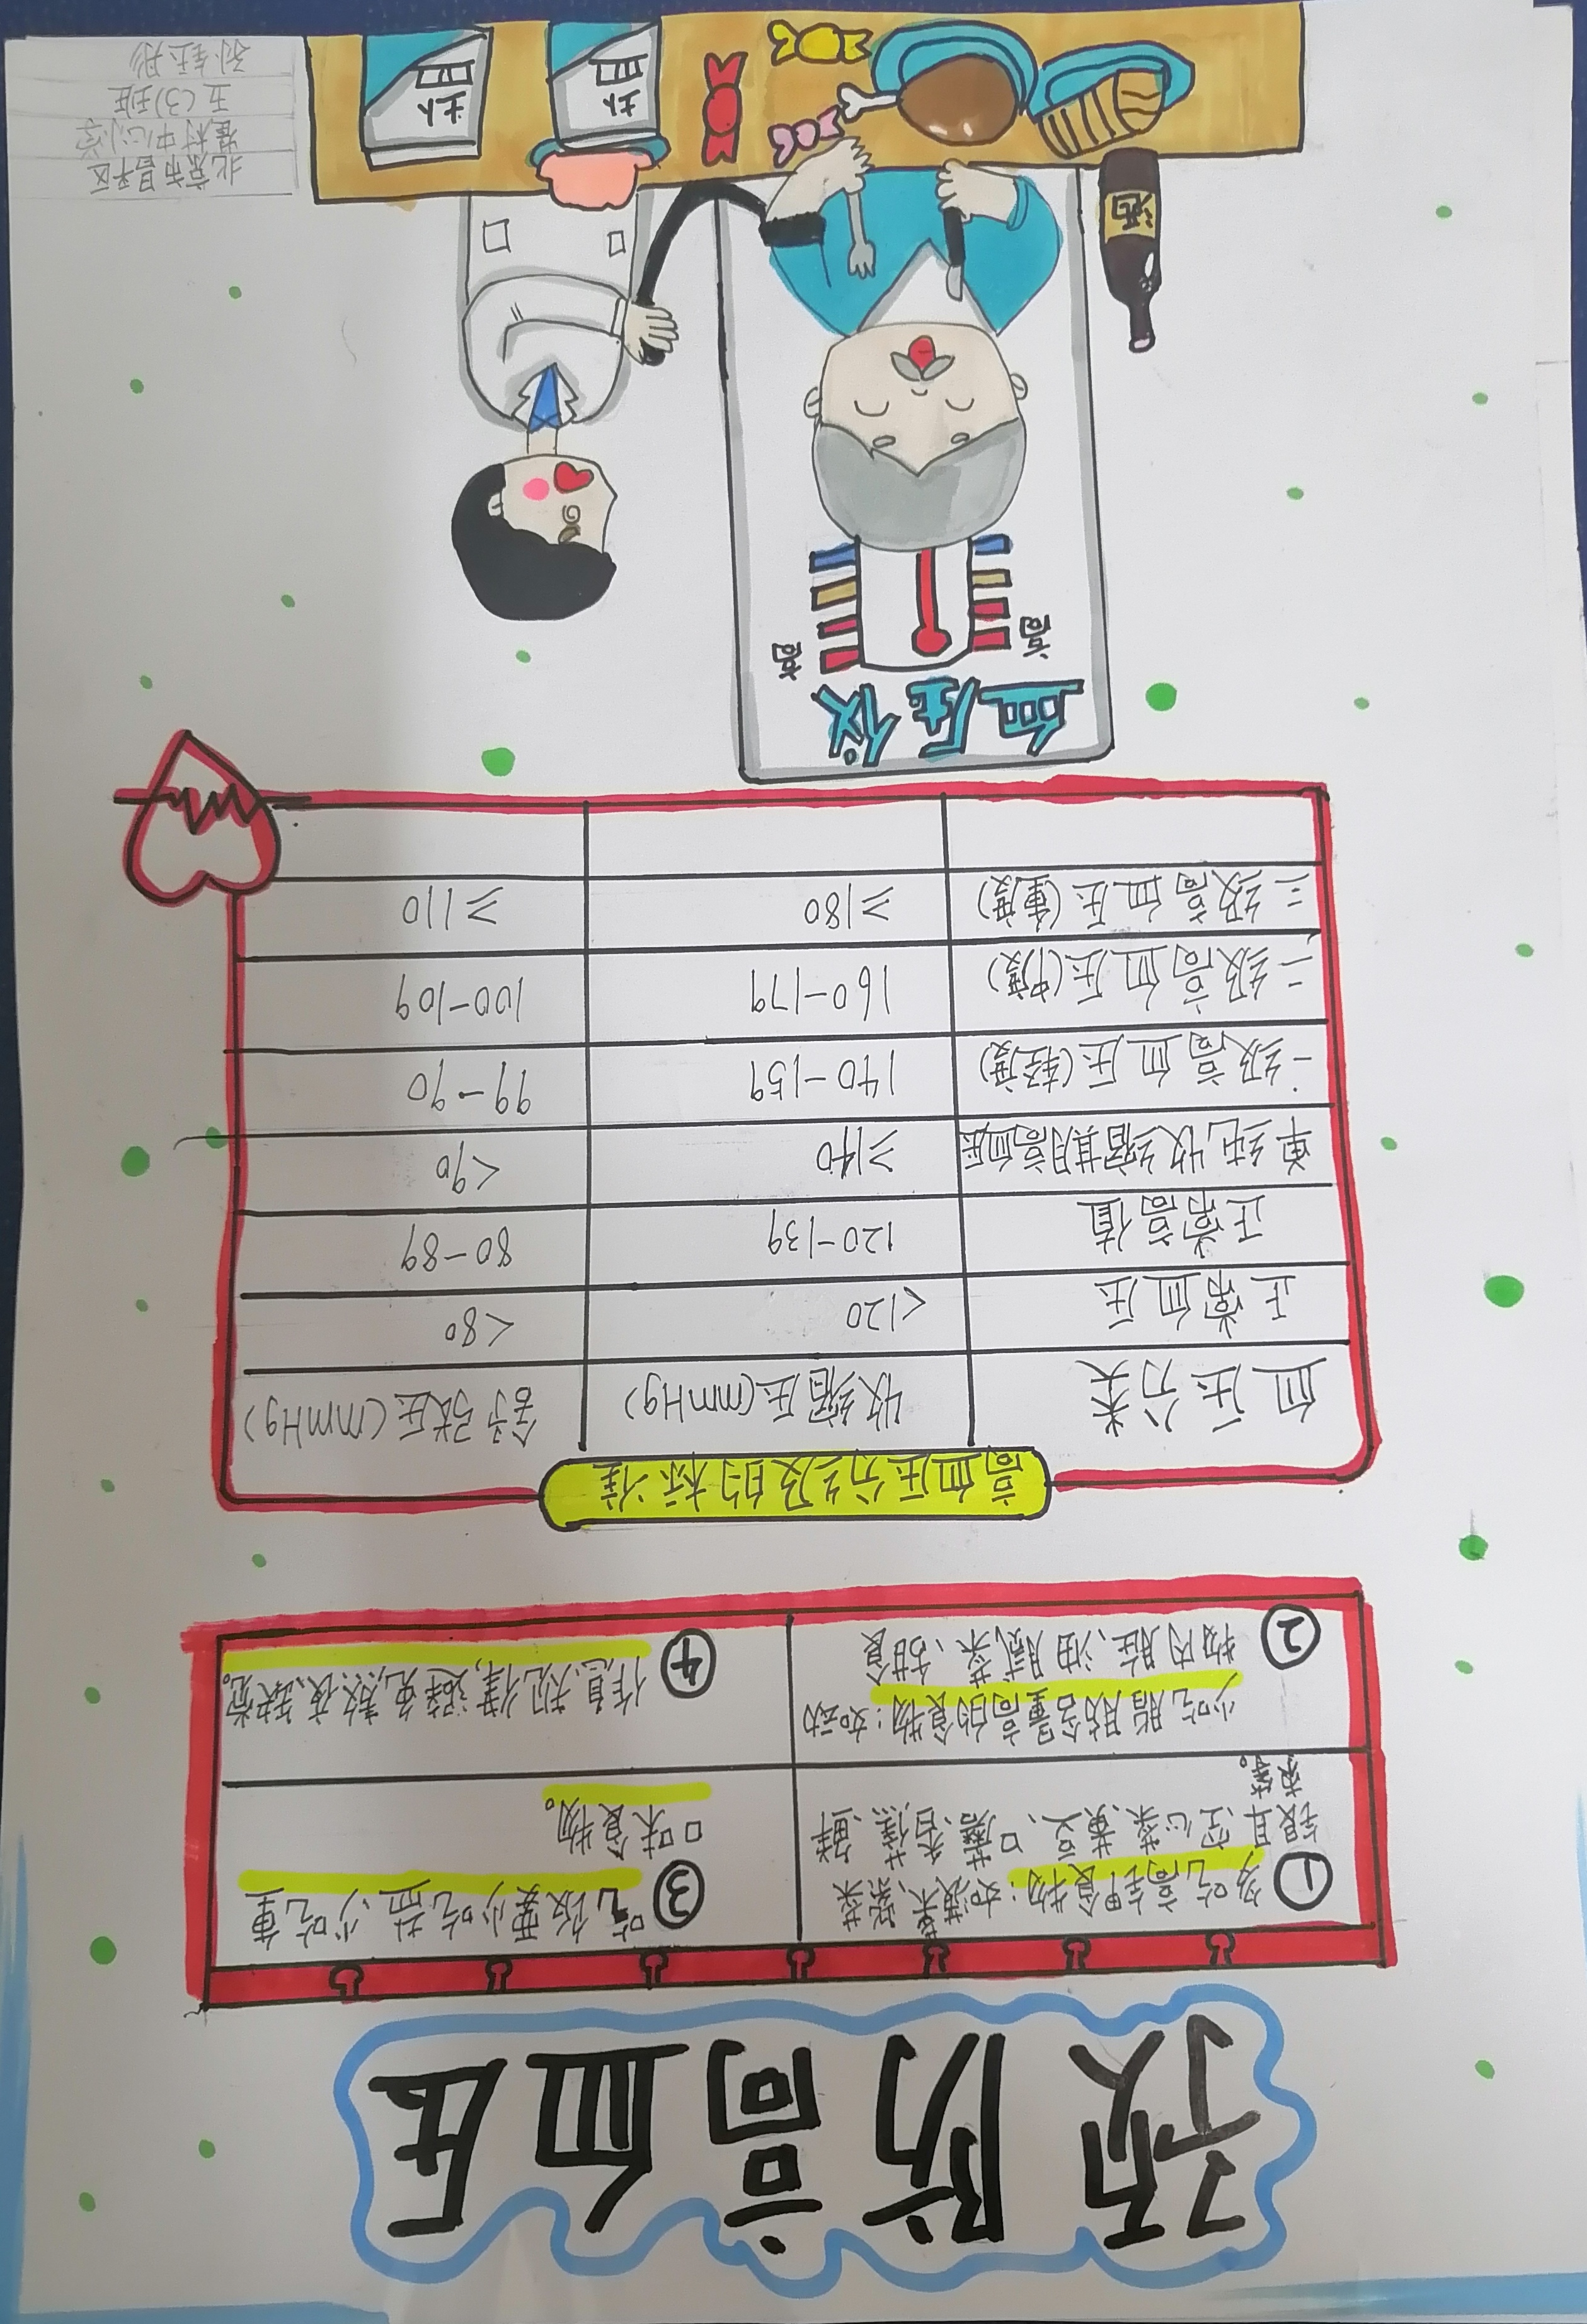 预防高血压
①多吃高钾食物:如菠菜、紫菜
银耳 空心菜、黄豆、口蘑、香蕉、鲜
枣等。
③吃饭要少吃盐,少吃重
口味食物。
②少吃脂肪含量高的食物:如动
物内脏、油腻菜、甜食
④作息规律,避免熬夜、缺觉。
高血压分级的标准
血压分类 收缩压(mmHg) 舒张压(mmHg)
正常血压 <120 <80
正常高值 120-139 80-89
单纯收缩期高血压 ≥140 <90
一级高血压(轻度) 140-159 99-90
二级高血压(中度) 160-179 100-109
三级高血压(重度) ≥180 ≥110
血压仪
高 高
酒
盐 盐
北京市昌平区
崔村中心小学
五(3)班